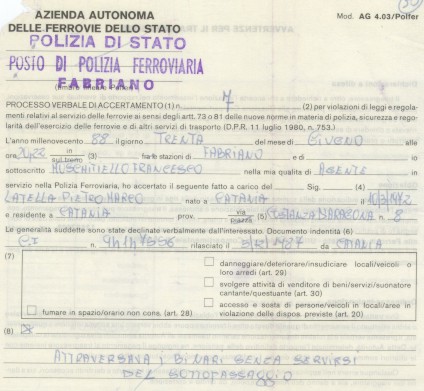 AZIENDA AUTONOMA
DELLE FERROVIE DELLO STATO
Mod. AG 4.03/Polfer
POLIZIA DI STATO
POSTO DI POLIZIA FERROVIARIA
FABRIANO
PROCESSO VERBALE DI ACCERTAMENTO (1) n. 7 (2) per violazioni di leggi e regola-
menti relativi al servizio delle ferrovie ai sensi degli artt. 73 o 81 delle nuove norme in materia di polizia, sicurezza e rego-
larità dell'esercizio delle ferrovie e di altri servizi di trasporto (D.P.R. 11 luglio 1980, n. 753.)
L'anno millenovecento 88 il giorno TRENTA del mese di GIUGNO alle
ore in sul treno (3) fra le stazioni di FABRIANO e di io
sottoscritto FRANCESCO nella mia qualità di AGENTE in
servizio nella Polizia Ferroviaria, ho accertato il seguente fatto a carico del Sig. (4)
LATELLA PIETRO MARCO nato a CATANIA il
e residente a CATANIA prov. via (5) COSTANZA n. 8
Le generalità suddette sono state declinate verbalmente dall'interessato. Documento indentità (6)
C.I n. rilasciato il 1987 da CATANIA
(7)
danneggiare/deteriorare/insudiciare locali/veicoli o
loro arredi (art. 29)
svolgere attività di venditore di beni/servizi/suonatore
cantante/questuante (art. 30)
fumare in spazio/orario non cons. (art. 28)
accesso e sosta di persone/veicoli in locali/aree in
violazione delle dispos. previste (art. 20)
(8)
ATTRAVERSAVA I BINARI SENZA SERVIRSI
DEL SOTTOPASSAGGIO